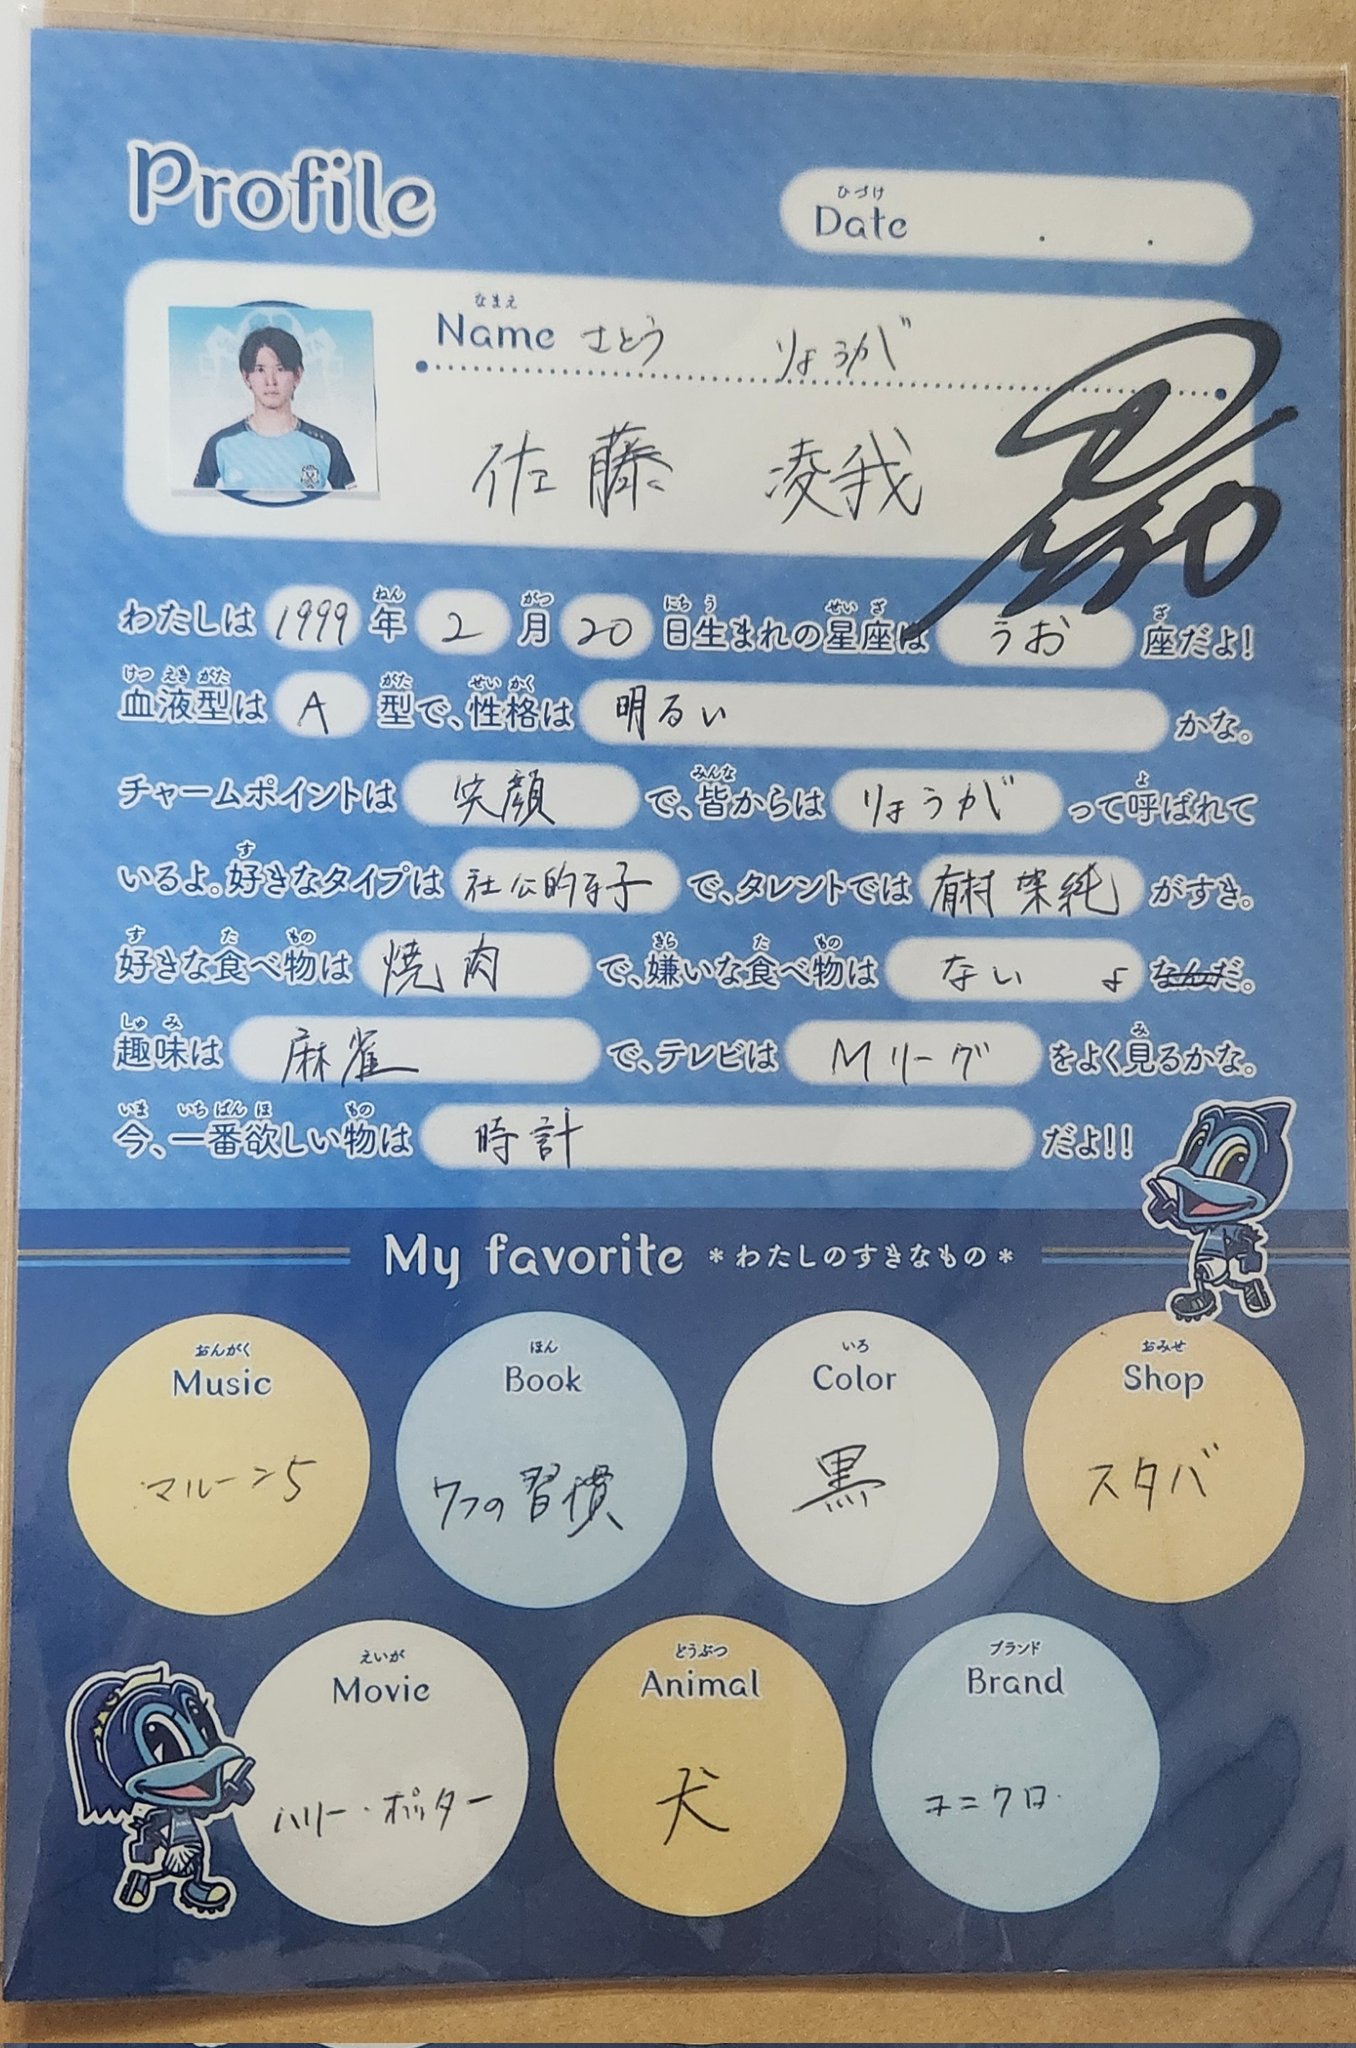 Profile
ひづけ
Date . .
なまえ
Name さとう りょうが
佐藤 凌我
ねん がつ にち う せい ざ ざ
わたしは 1999 年 2 月 20 日生まれの星座は うお 座だよ!
けつ えき がた がた せい かく
血液型は A 型で、性格は 明るい かな。
みんな よ
チャームポイントは 笑顔 で、皆からは りょうが って呼ばれて
す
いるよ。好きなタイプは 社公的な子 で、タレントでは 有村架純 がすき。
す た もの きら た もの
好きな食べ物は 焼肉 で、嫌いな食べ物は ない よ なんだ。
しゅ み み
趣味は 麻雀 で、テレビは Mリーグ をよく見るかな。
いま いち ばん ほ もの
今、一番欲しい物は 時計 だよ!!
My favorite *わたしのすきなもの*
おんがく ほん いろ おみせ
Music Book Color Shop
マルーン5 7つの習慣 黒 スタバ
えいが どうぶつ ブランド
Movie Animal Brand
ハリー・ポッター 犬 ユニクロ